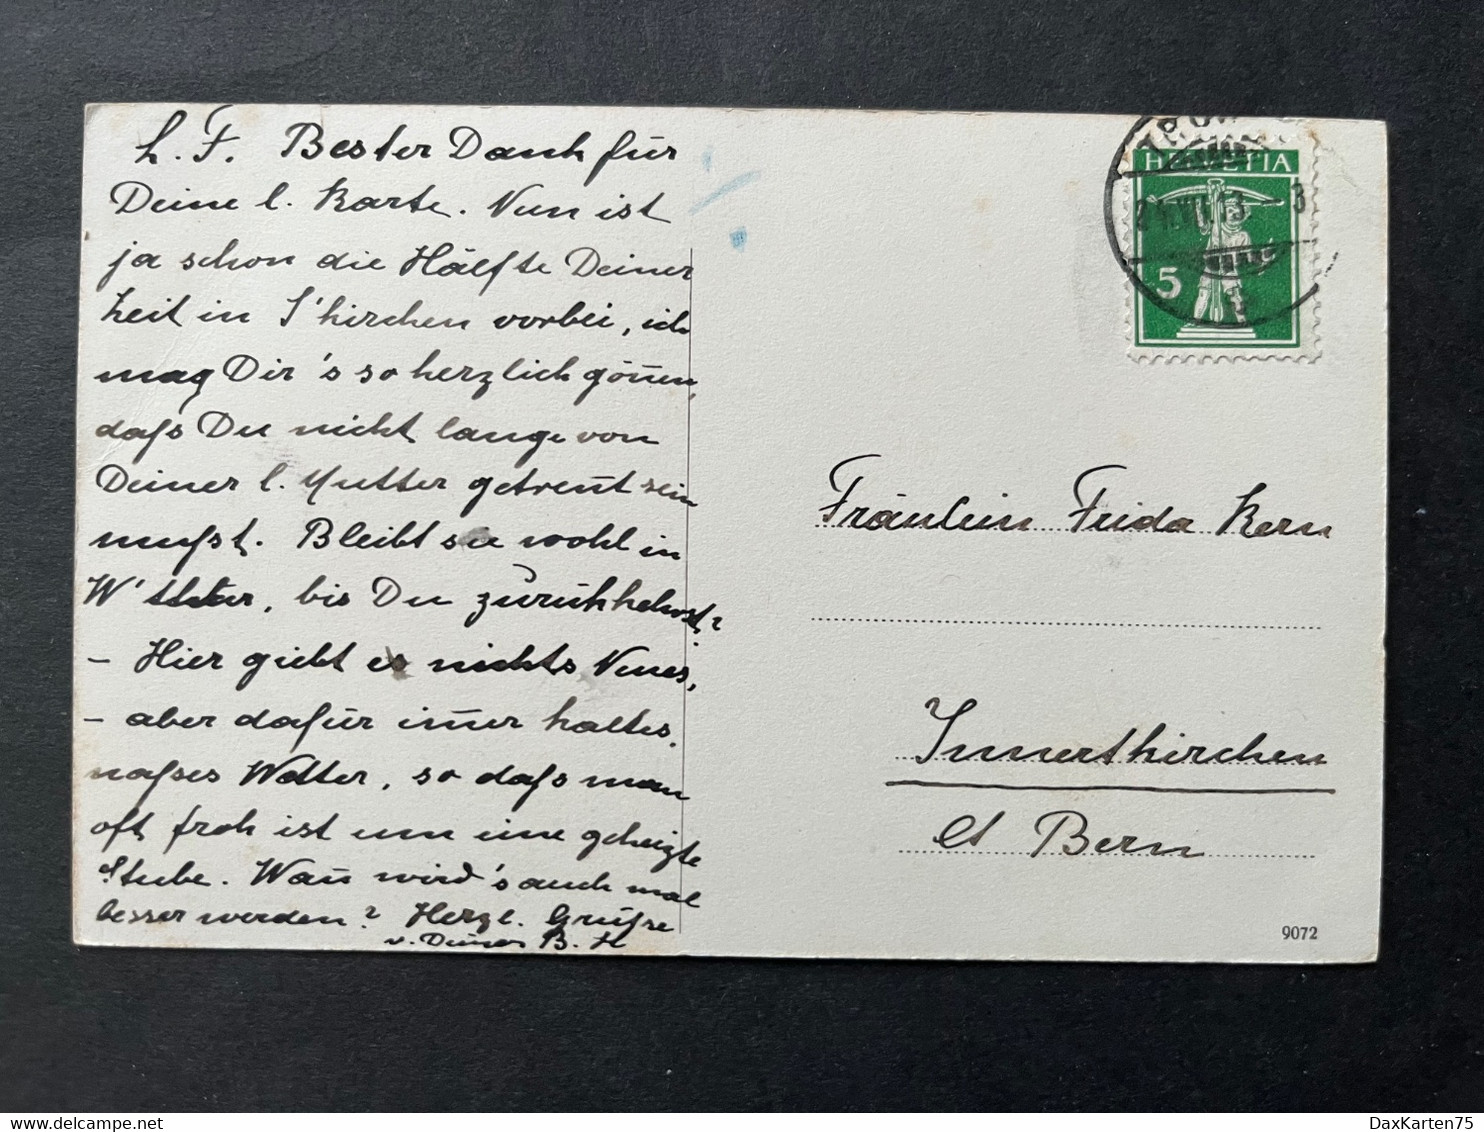 L. F. Bester Dank für
Deine l. Karte. Nun ist
ja schon die Hälfte Deiner
Zeit in I'kirchen vorbei, ich
mag Dir's so herzlich göñen,
daß Du nicht lange von
Deiner l. Mutter getreñt sein
mußt. Bleibt sie wohl in
W'thur, bis Du zurückkehrst?
– Hier giebt es nichts Neues,
– aber dafür im̄er kaltes,
naßes Wetter, so daß man
oft froh ist um eine geheizte
Stube. Wañ wird's auch mal
besser werden? Herzl. Grüße
v. Deiner B. H
HELVETIA
5
Fräulein Frida Kern
Innertkirchen
Ct Bern
9072
DaxKarten75